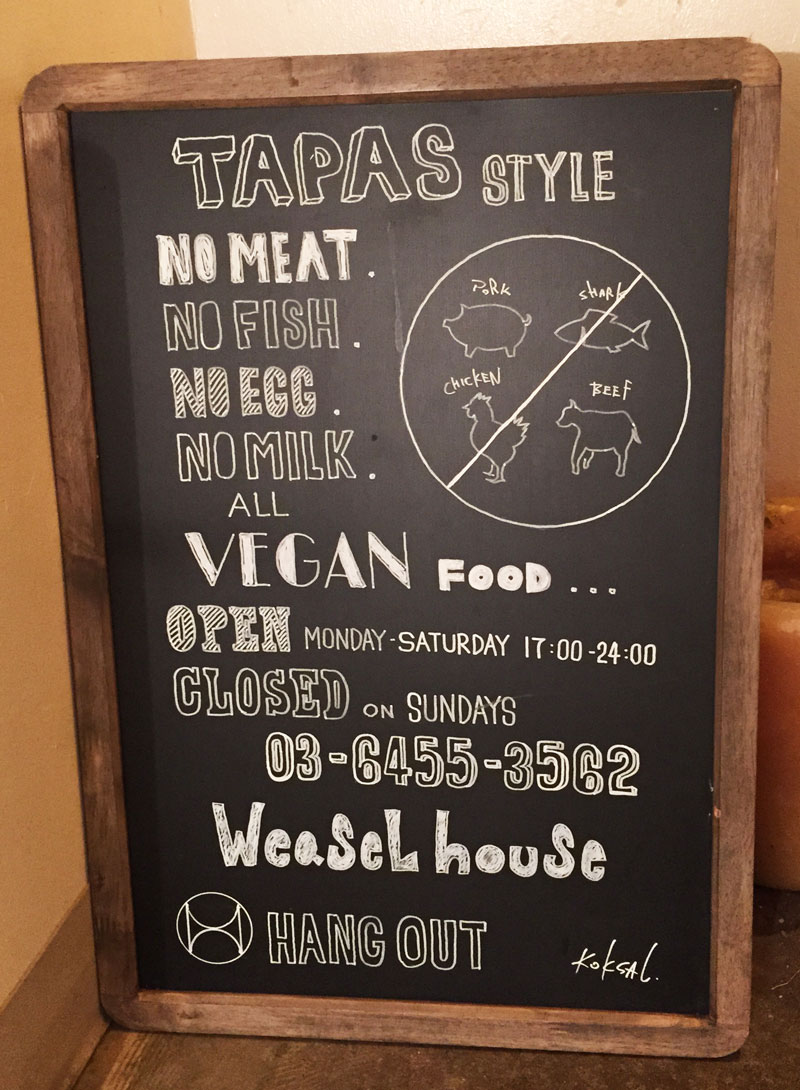 TAPAS STYLE
NO MEAT.
NO FISH.
NO EGG.
NO MILK.
PORK SHARK
CHICKEN BEEF
ALL
VEGAN FOOD ...
OPEN MONDAY-SATURDAY 17:00-24:00
CLOSED ON SUNDAYS
03-6455-3562
WeaseL house
HANG OUT
KoKSAL.